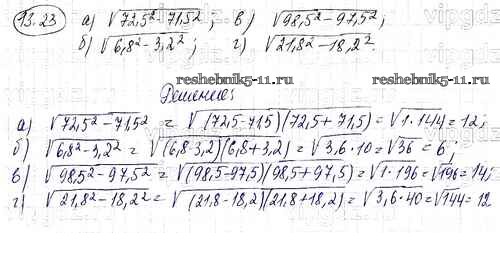 93.23 а) √72,5² - 71,5² ; в) √98,5² - 97,5² ;
б) √6,8² - 3,2² ; г) √21,8² - 18,2² .
reshebnik5-11.ru
reshebnik5-11.ru
Решение:
а) √72,5² - 71,5² = √(72,5-71,5)(72,5+71,5) = √1·144 = 12;
б) √6,8² - 3,2² = √(6,8-3,2)(6,8+3,2) = √3,6·10 = √36 = 6;
в) √98,5² - 97,5² = √(98,5-97,5)(98,5+97,5) = √1·196 = √196 = 14;
г) √21,8² - 18,2² = √(21,8-18,2)(21,8+18,2) = √3,6·40 = √144 = 12